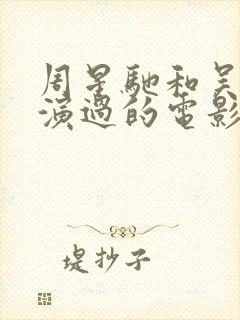 周星馳和吴
演過的電影
堤抄子